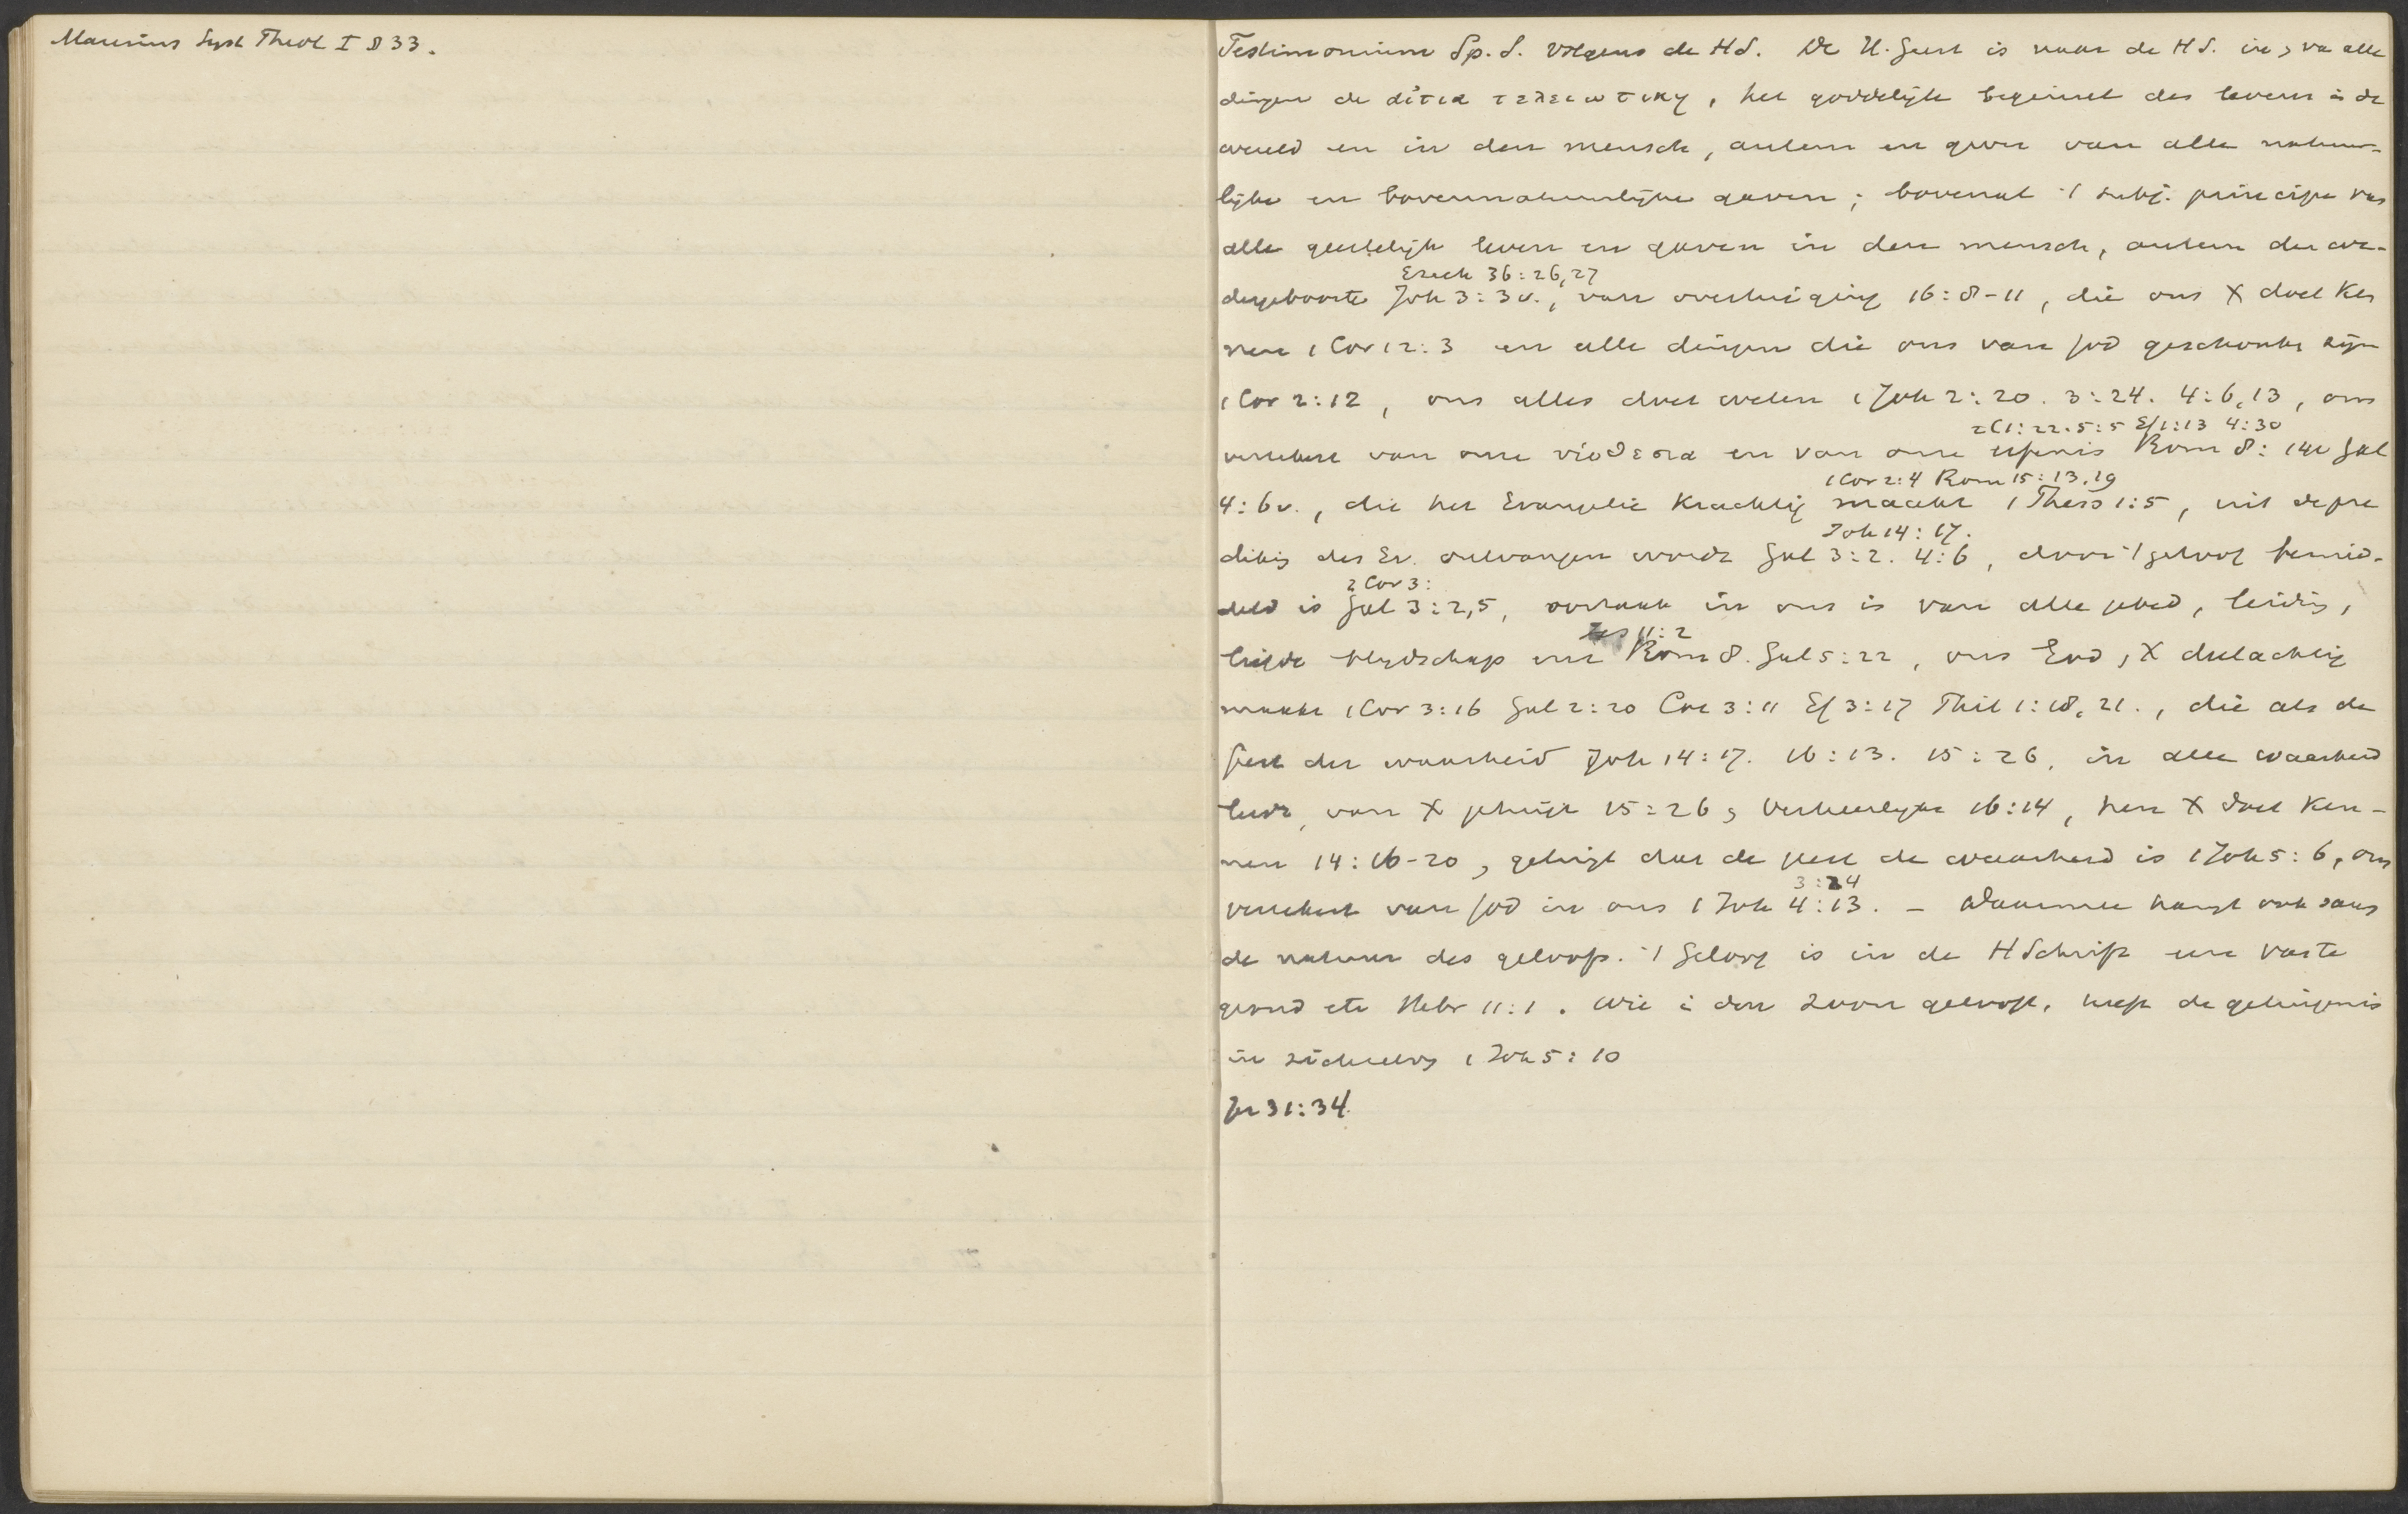 Maresius Syst Theol I § 33.
Testimonium Sp. S. volgens de HS. De H. Geest is naar de HS. in, va alle
dingen de αἰτια τελειωτικη, het goddelijk beginsel des levens in de
wereld en in den mensch, auteur en gever van alle natuur-
lijke en bovennatuurlijke gaven; bovenal 't subj. principe van
alle geestelijk leven en gaven in den mensch, auteur der we-
Ezech 36:26,27
dergeboorte Joh 3:3v., van overtuiging 16:8-11, die ons X doet ken
nen 1 Cor 12:3 en alle dingen die ons van God geschonken zijn
1 Cor 2:12, ons alles doet weten 1 Joh 2:20. 3:24. 4:6,13, ons
2 C 1:22. 5:5 Ef 1:13 4:30
verzekert van onze υιοθεσια en van onze erfenis Rom 8:14v Gal
1 Cor 2:4 Rom 15:13.19
4:6v., die het Evangelie krachtig maakt 1 Thess 1:5, uit de pre
Joh 14:17.
diking des Ev. ontvangen wordt Gal 3:2. 4:6, door 't geloof bemid-
2 Cor 3:
deld is Gal 3:2,5, oorzaak in ons is van alle gebed, leiding,
Jes 11:2
liefde blijdschap enz Rom 8. Gal 5:22, ons God, X deelachtig
maakt 1 Cor 3:16 Gal 2:20 Col 3:11 Ef 3:17 Phil 1:18,21., die als de
Geest der waarheid Joh 14:17. 16:13. 15:26, in alle waarheid
leidt, van X getuigt 15:26, verheerlijkt 16:14, hen X doet ken-
nen 14:16-20, getuigt dat de geest de waarheid is 1 Joh 5:6, ons
3:24
verzekert van God in ons 1 Joh 4:13. - Daarmee hangt ook saam
de natuur des geloofs. 't Geloof is in de HSchrift een vaste
grond etc Hebr 11:1. Wie in den Zoon gelooft, heeft de getuigenis
in zichzelven 1 Joh 5:10
Jer 31:34.